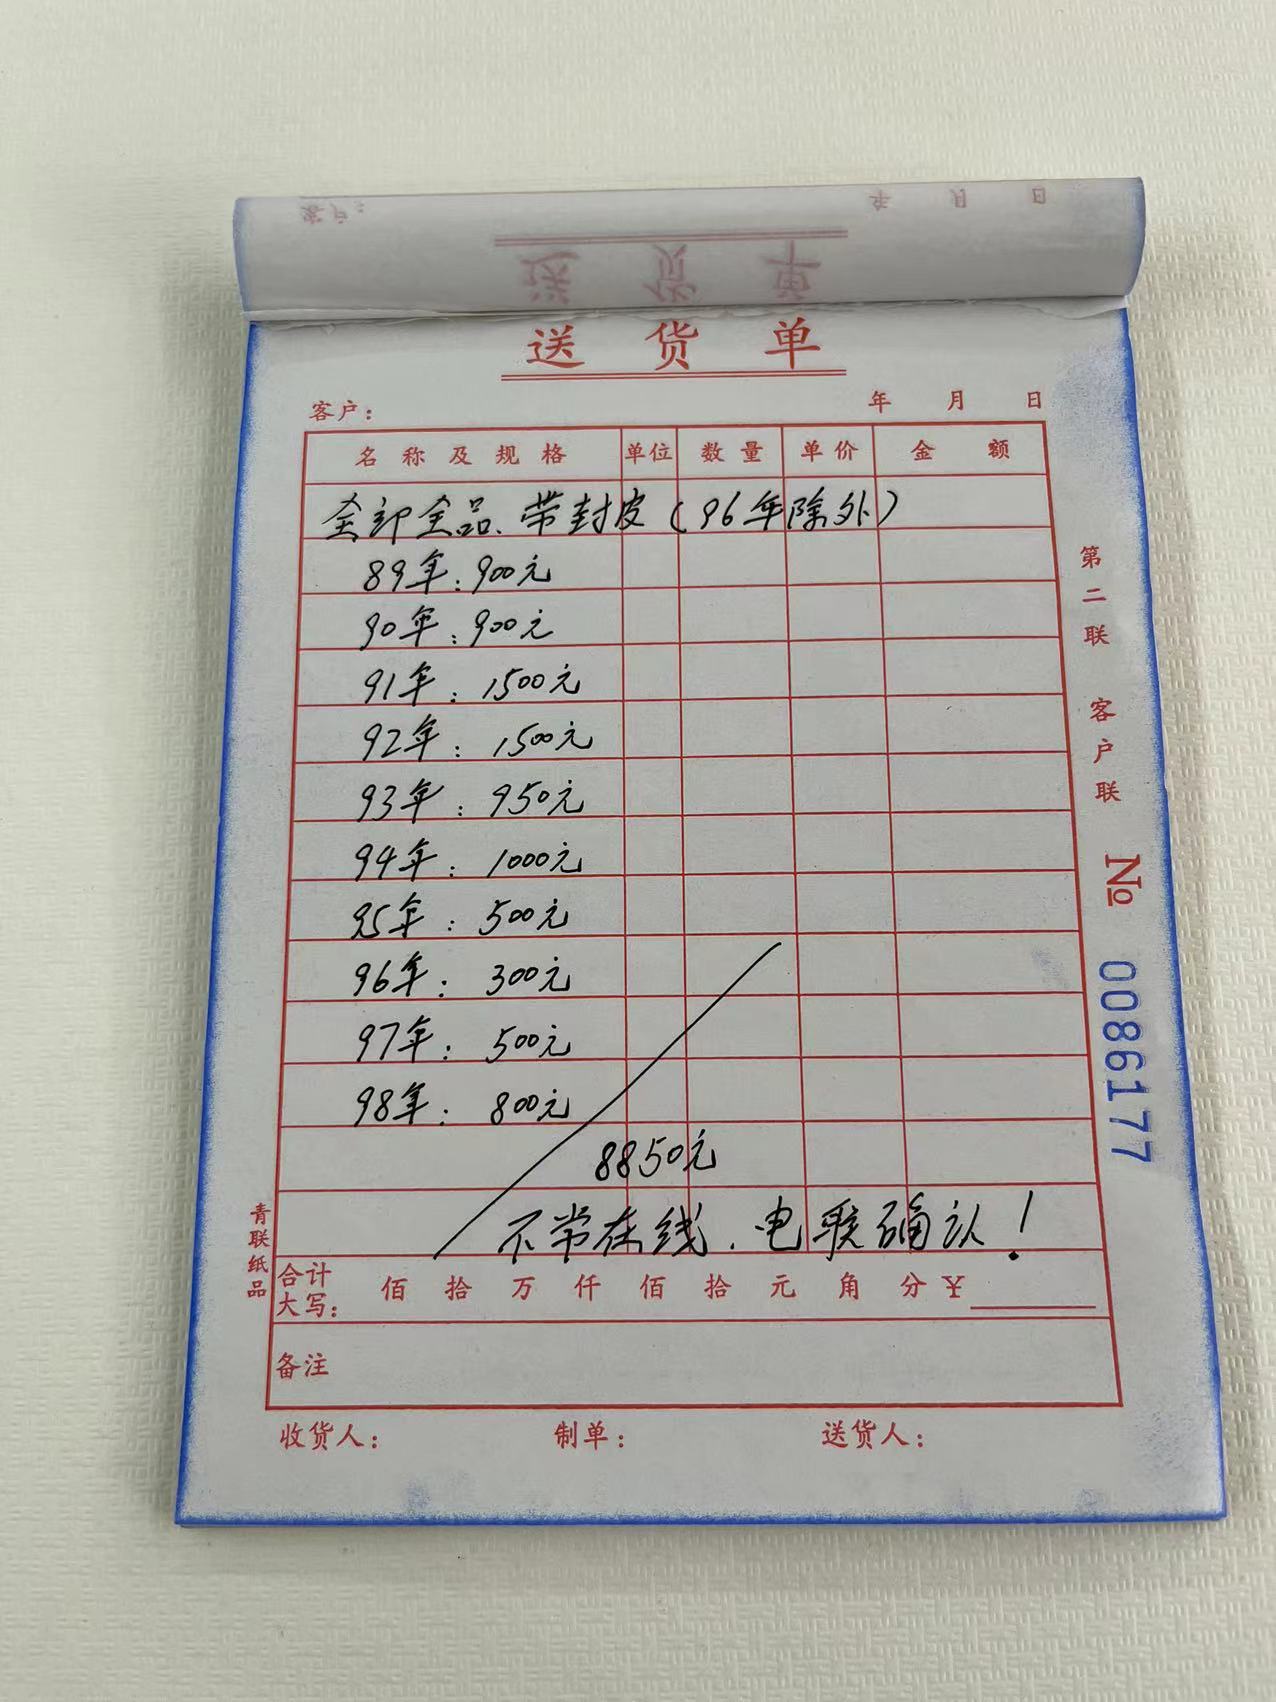 客户： 年 月 日
送货单
送货单
客户： 年 月 日
名称及规格 单位 数量 单价 金额
全部全品、带封皮(96年除外)
89年：900元
90年：900元
91年：1500元
92年：1500元
93年：950元
94年：1000元
95年：500元
96年：300元
97年：500元
98年：800元
8850元
不常在线、电联确认！
合计大写： 佰 拾 万 仟 佰 拾 元 角 分 ¥
备注
收货人： 制单： 送货人：
第二联 客户联
№ 0086177
青联纸品